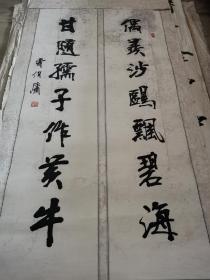 儒羡沙鷗飄碧海
甘隨孺子作黄牛